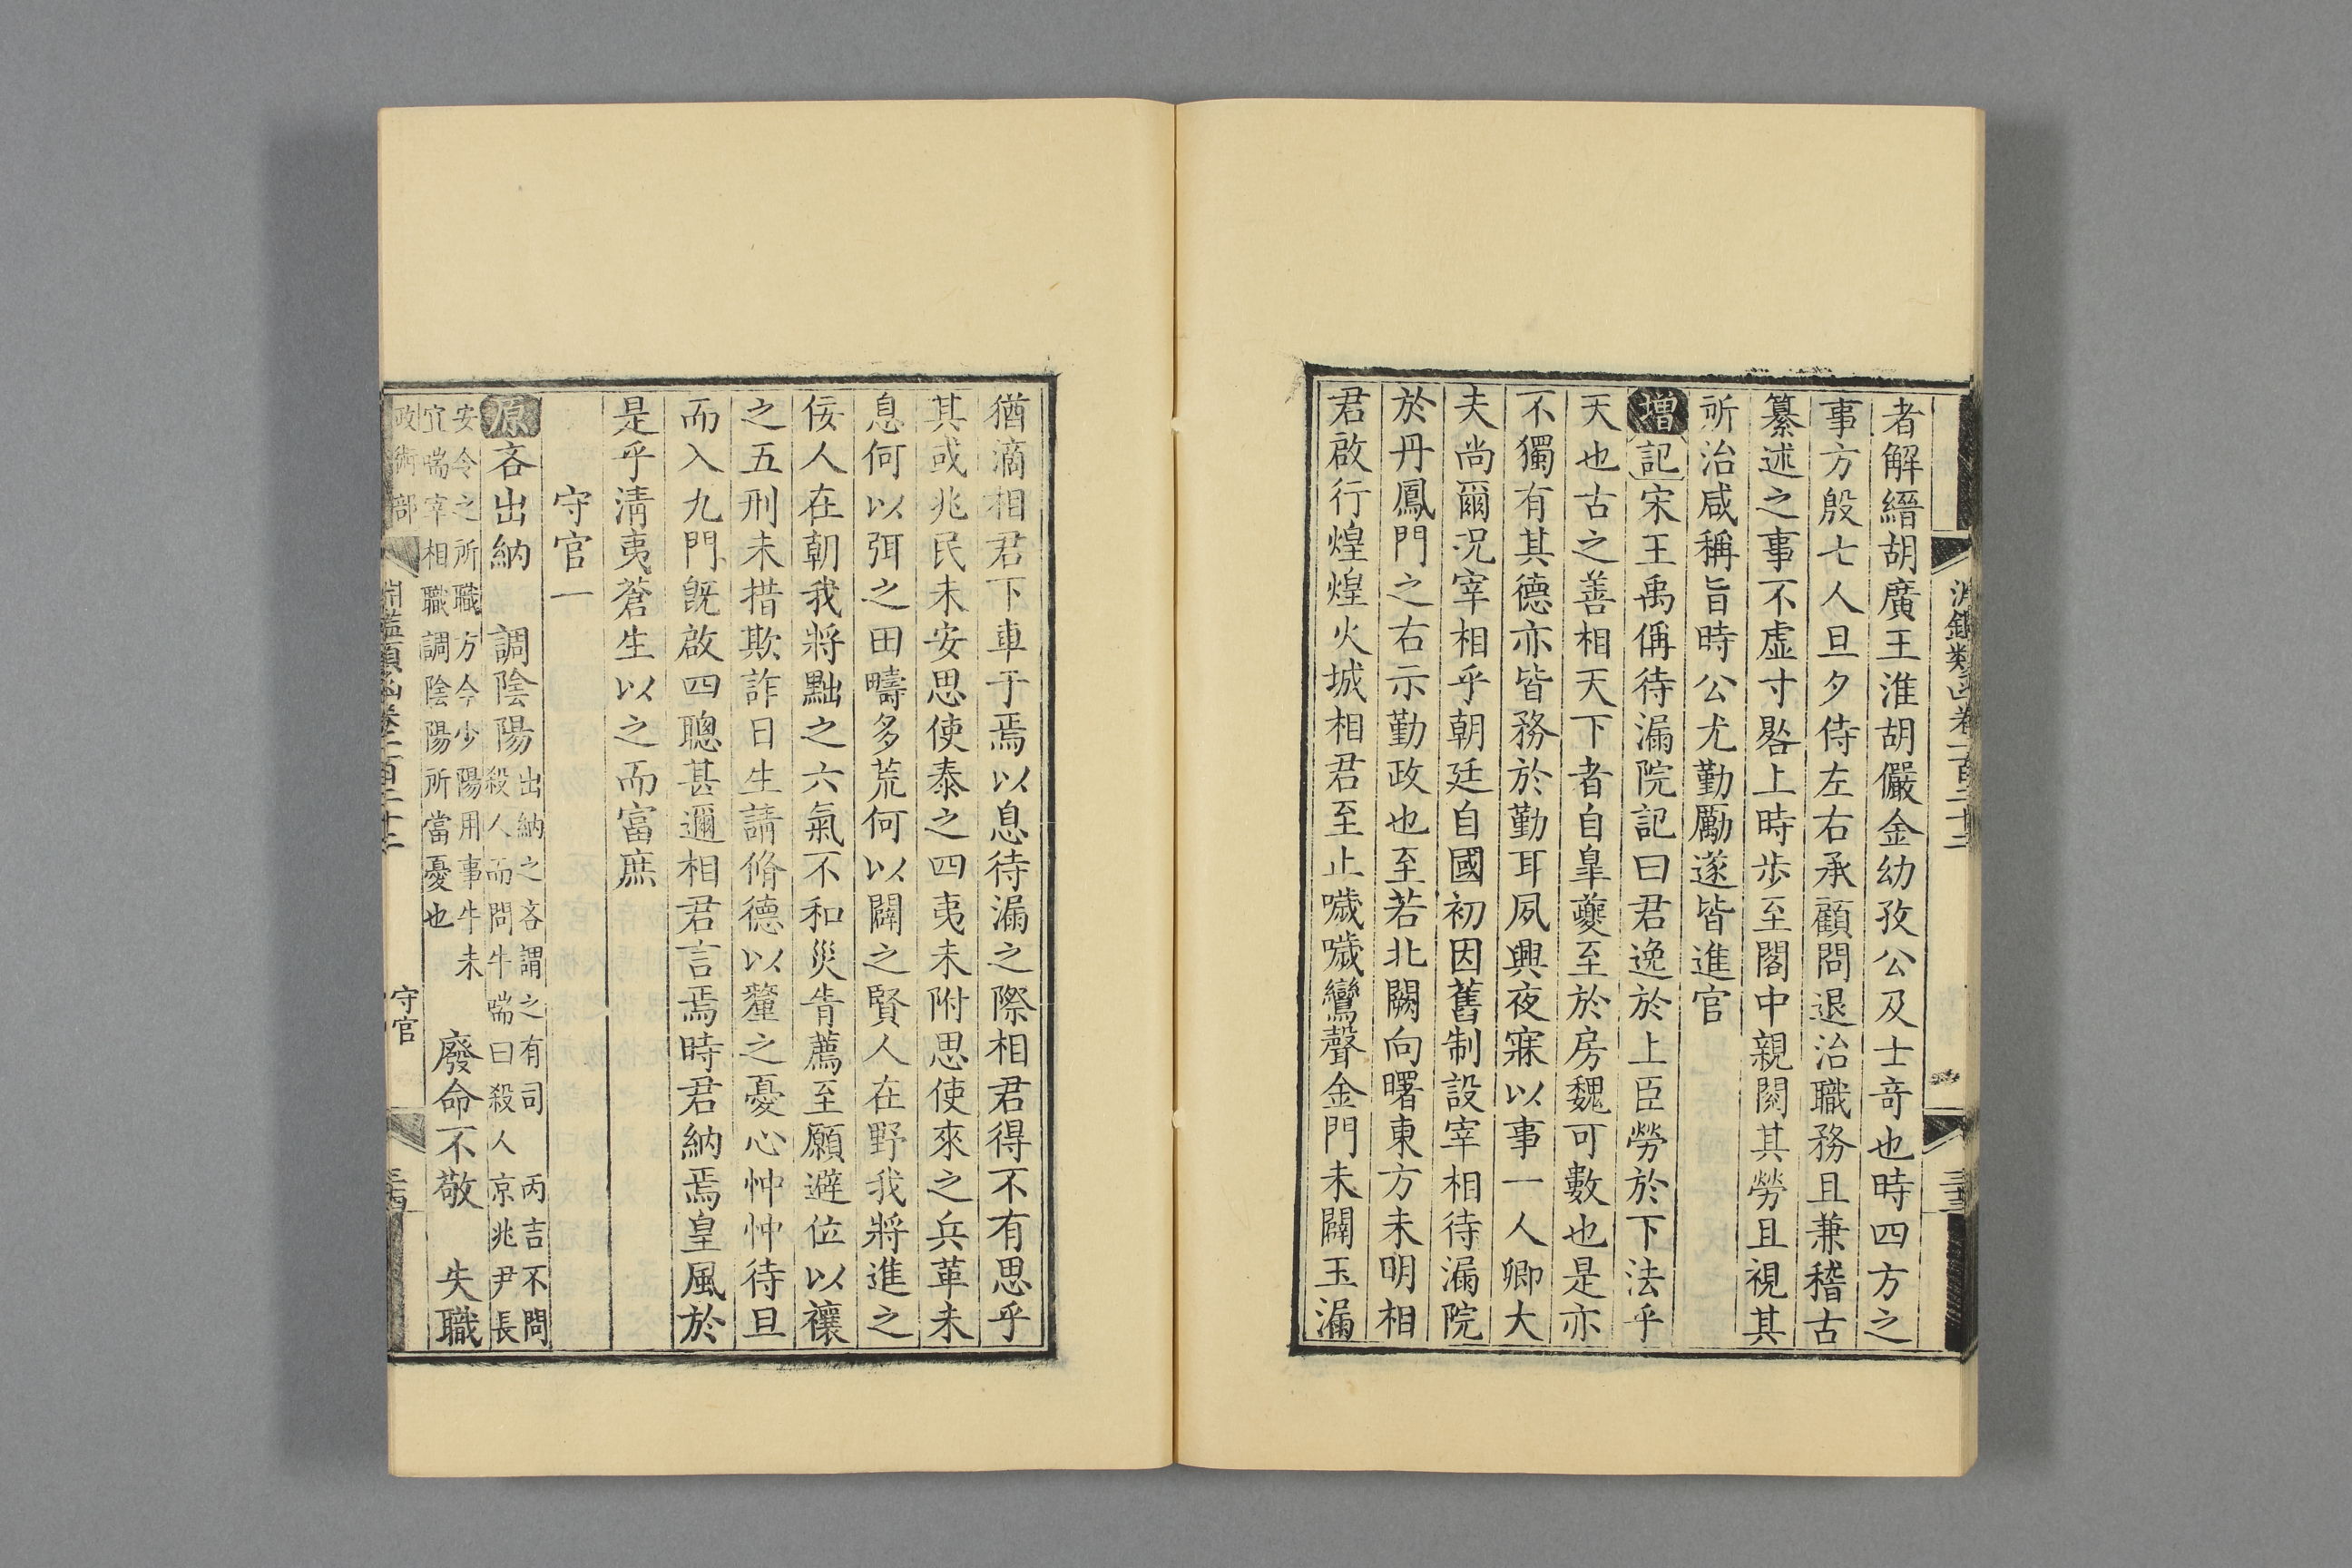 者解縉胡廣王淮胡儼金幼孜公及士竒也時四方之
事方殷七人旦夕侍左右承顧問退治職務且兼稽古
纂述之事不虚寸晷上時歩至閣中親閱其勞且視其
所治咸稱旨時公尤勤勵遂皆進官
增記宋王禹偁待漏院記曰君逸於上臣勞於下法乎
天也古之善相天下者自臯夔至於房魏可數也是亦
不獨有其德亦皆務於勤耳夙興夜寐以事一人卿大
夫尚爾況宰相乎朝廷自國初因舊制設宰相待漏院
於丹鳳門之右示勤政也至若北闕向曙東方未明相
君啟行煌煌火城相君至止噦噦鸞聲金門未闢玉漏
猶滴相君下車于焉以息待漏之際相君得不有思乎
其或兆民未安思使泰之四夷未附思使來之兵革未
息何以弭之田疇多荒何以闢之賢人在野我將進之
佞人在朝我將黜之六氣不和災眚薦至願避位以禳
之五刑未措欺詐日生請脩德以釐之憂心忡忡待旦
而入九門既啟四聰甚邇相君言焉時君納焉皇風於
是乎淸夷蒼生以之而富庶
守官一
原吝出納 出納之吝謂之有司 調陰陽 丙吉不問殺人而問牛喘曰殺人京兆尹長
安令之所職方今少陽用事牛未宜喘宰相職調陰陽所當憂也 廢命不敬 失職
政術部
守官